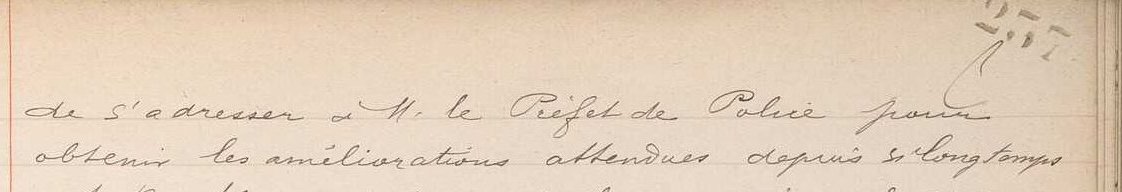 257
de s'adresser à M. le Préfet de Police pour
obtenir les améliorations attendues depuis si longtemps